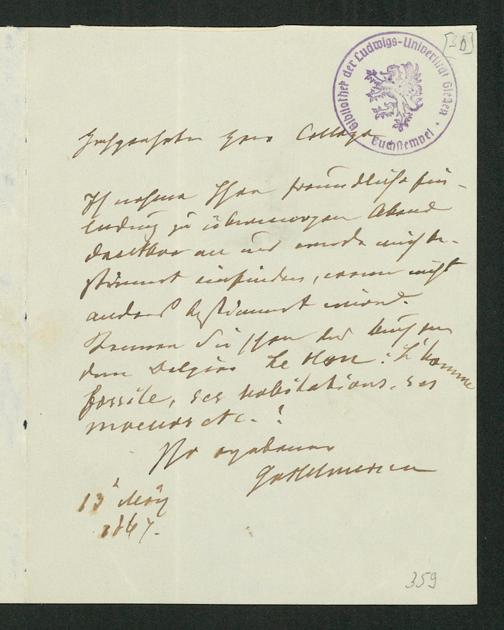 [30]
Bibliothek der Ludwigs-Universität Gießen
Buchstempel
Hochgeehrter Herr College
Ich nehme Ihre freundliche Ein-
ladung zu übermorgen Abend
dankbar an und werde mich be-
stimmt einfinden, wenn nicht
anders bestimmt wird.
Kennen Sie schon das Buch von
dem Belgier Le Hon: L'homme
fossile, ses habitations, ses
moeurs etc.?
Ihr ergebener
13 März
1867.
359